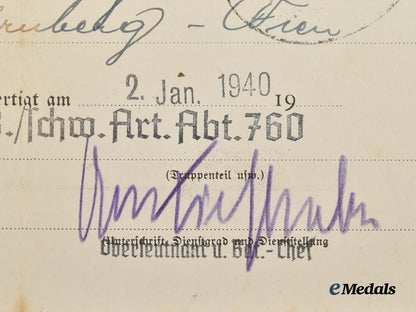 – Wien
ertigt am 2. Jan. 1940 19
./schw. Art. Abt. 760
(Truppenteil usw.)
Unterschrift, Dienstgrad und Dienststellung
Oberleutnant u. Bttr.-Chef
eMedals